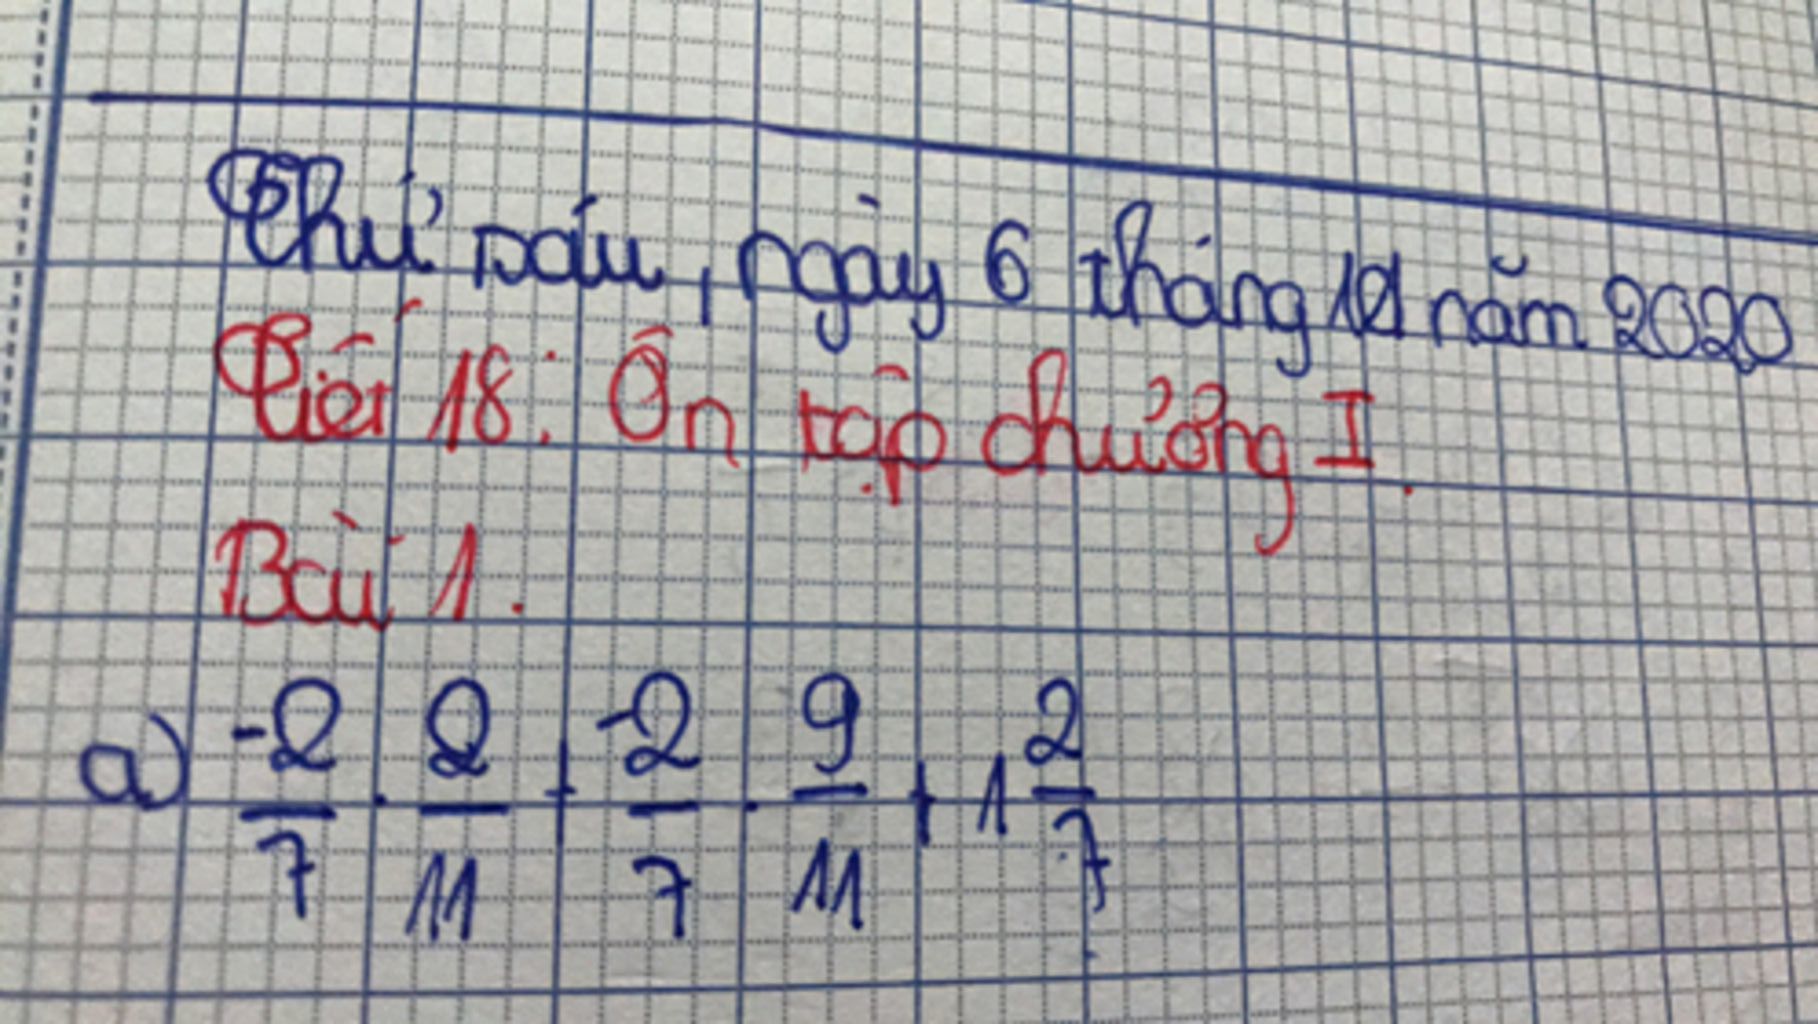 Thứ sáu, ngày 6 tháng 11 năm 2020
Tiết 18: Ôn tập chương I.
Bài 1.
a) -2/7 . 2/11 + -2/7 . 9/11 + 1 2/7